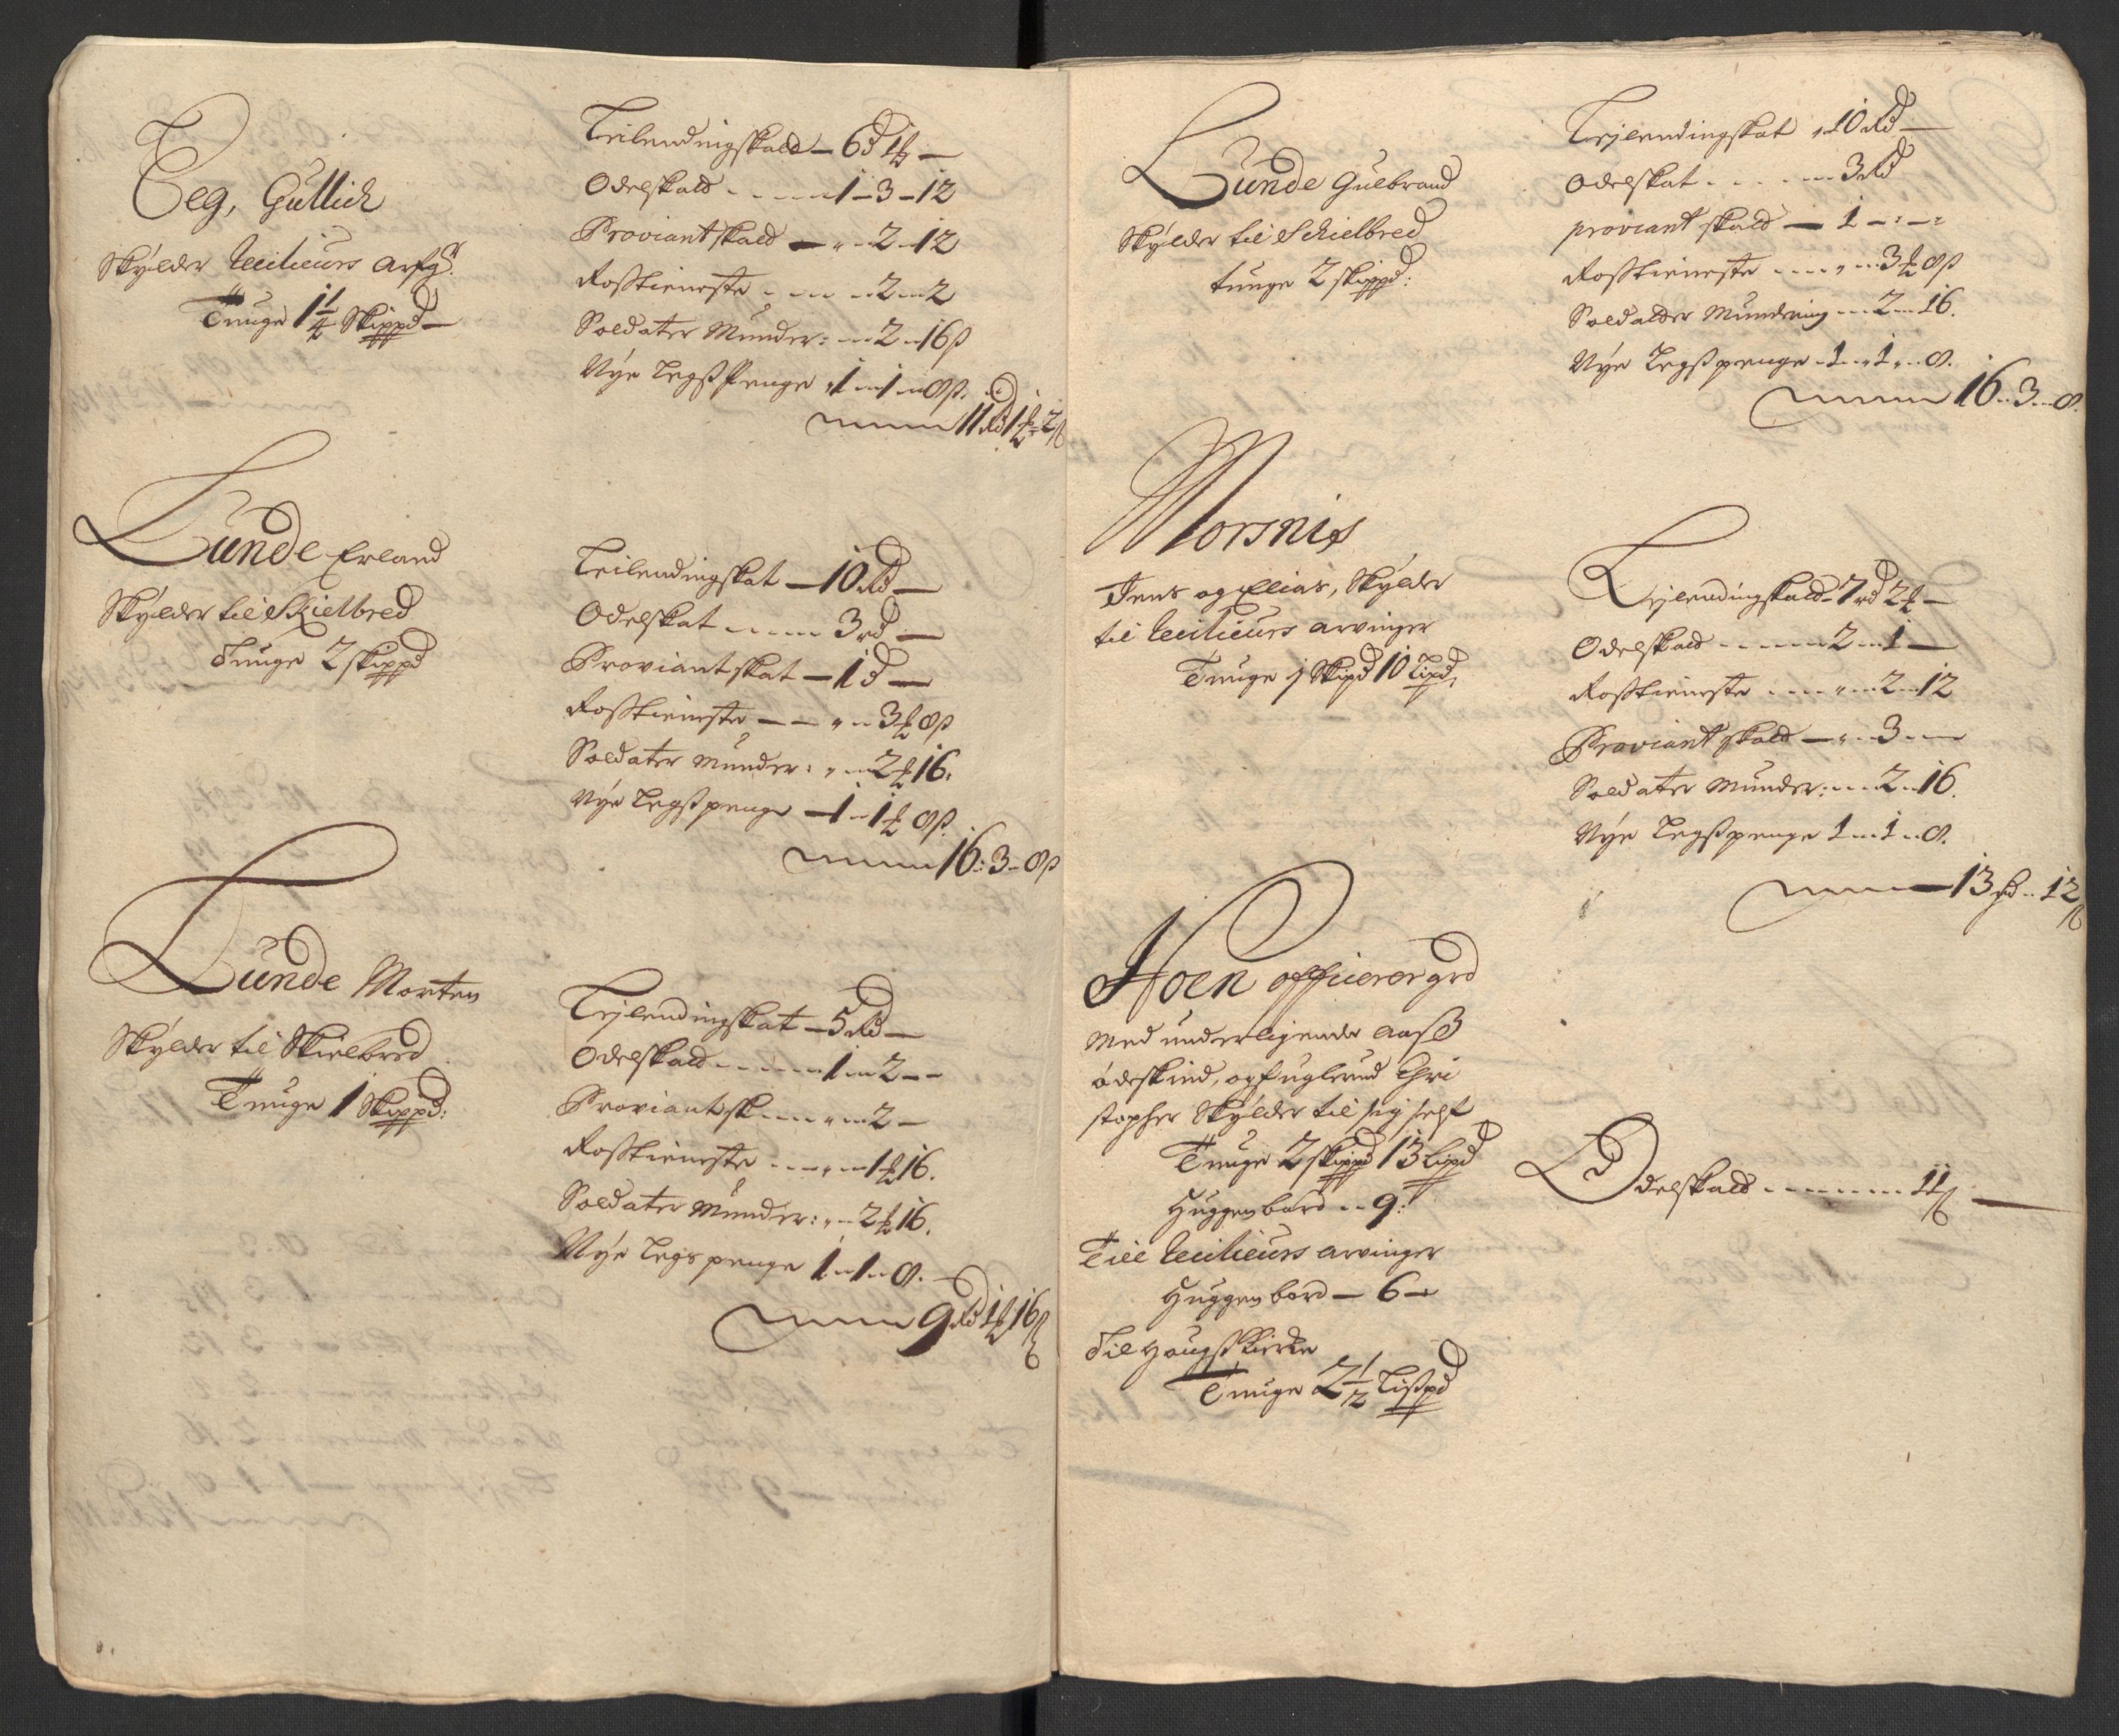 Teg, Gullich
Skylder Ceciliens arfg:
Tunge 1 1/4 Skippd —
Leilendingskald — 6 d 1 ½ —
Odelskald - - - - 1 - 3 - 12
Proviantskald — „ - 2 - 12
Rosstieneste - - - - 2 - 2
Soldater Munder: - 2 - 16 ß
Nÿe Legss Penge „ 1 - 1 - 8 ß.
11 Rd 1 ½ - 2 ß
Lunde Erland
Skÿlder til Skielbred
Tunge 2 skippd
Leilendingskat — 10 Rd —
Odelskat - - - - 3 rd —
Proviantskat — 1 d —
Rosstieneste — — „ - 3 ½ 8 ß
Soldater Munder: „ - 2 ½ 16.
Nÿe Legss penge — 1 - 1 ½ 8 ß.
16 : 3 - 8 ß
Lunde Morten
Skÿlder til Skielbred
Tunge 1 Skippd:
Lejlendingskat — 5 Rd —
Odelskald - - - - - 1 - 2 - -
Proviantsk - - - „ - 2 —
Rosstieneste - - - „ - 1 ½ 16.
Soldater Munder: „ - 2 ½ 16.
Nÿe Legs penge 1 - 1 - 8. —
9 Rd 1 ½ 16 ß
Lunde Gulbrand
Skÿlder til Schielbred
tunge 2 skippd:
Lejlendingskat „ 10 Rd —
Odelskat - - - - - 3 Rd
proviantskald — 1 - : - :
Rosstieneste - - - „ - 3 ½ 8 ß
Soldatder Mundering - - 2 - 16.
Nÿe Legss penge - 1 - „ 1 „ - 8.
16 - 3 - 8.
Morsnis
Jens og Elias, Skÿlder
til Ceciliens arvinger
Tunge j Skipd 10 Lipd,
Lejlendingskald - 7 rd 2 ½ —
Odelskald - - - - - 2 - 1 —
Rosstieneste - - - - „ - 2 - 12
Proviantskald — „ - 3 - —
Soldater Munder: - - 2 - 16.
Nÿe Legss penge 1 - 1 - 8.
13 Rd - 12 ß
Hoen officerer grd
Med underligende Aass
ødeskind, og fuglerud Chri
stopher Skÿlder til sig self
Tunge 2 skippd 13 Lipd
Huggenbord - - 9 :
Till Ceciliens arvinger
Huggenbord — 6 —
Til Haugss Kierke
Tunge 2 1/2 Lisspd
Odelskald - - - - - - 11 ß —